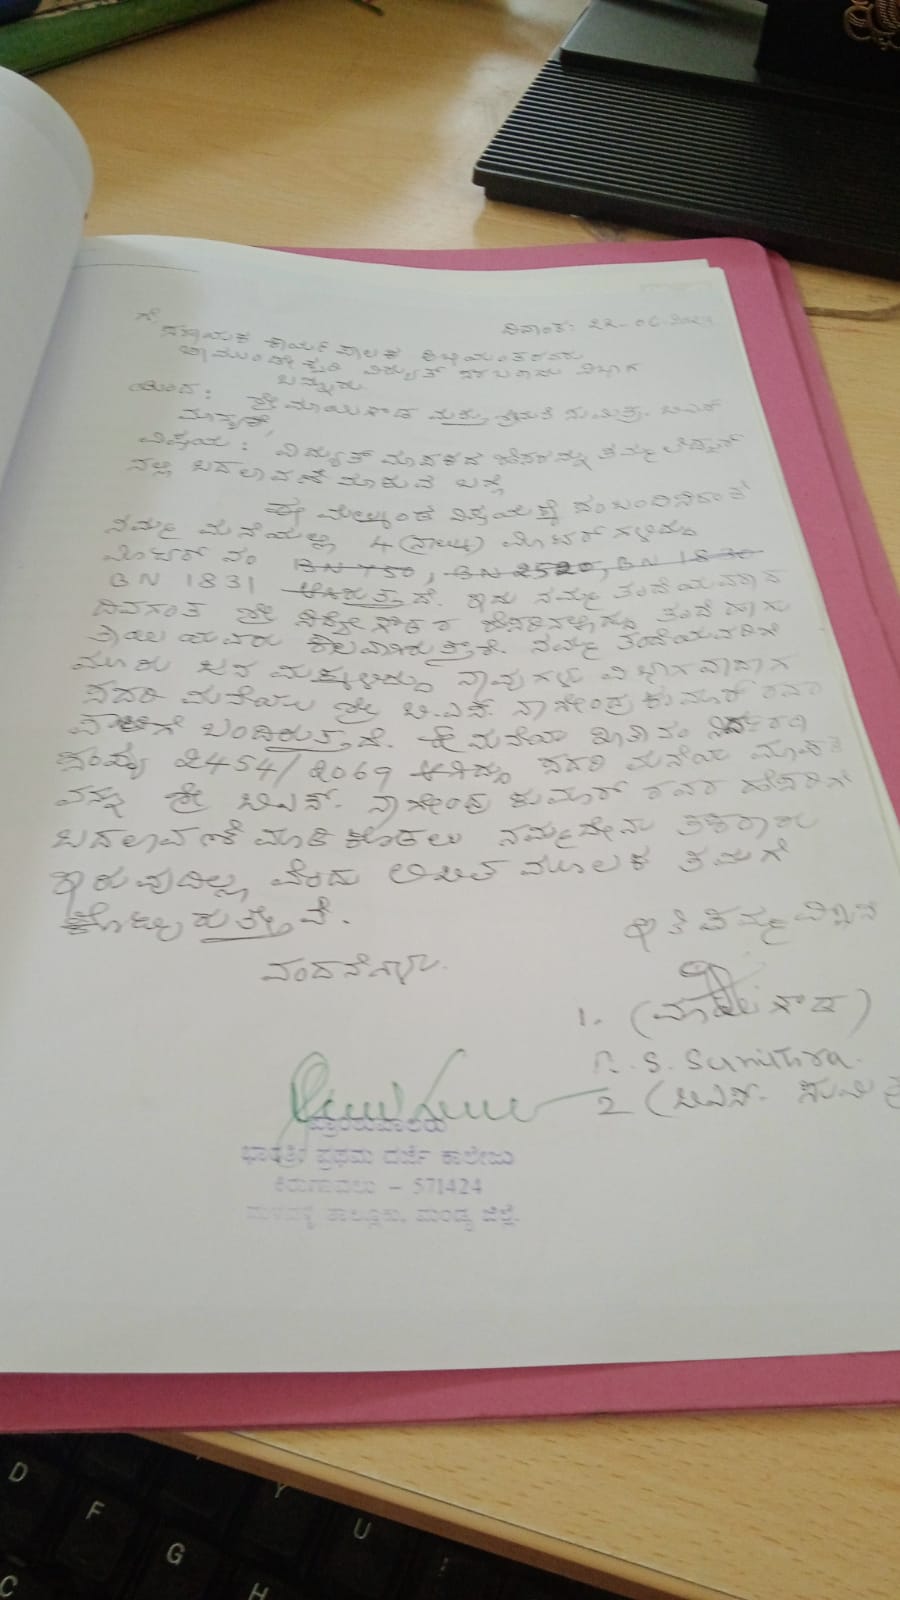 ಗೆ,
ದಿನಾಂಕ: 22-06-2024
ಸಹಾಯಕ ಕಾರ್ಯಪಾಲಕ ಅಭಿಯಂತರರು
ಚಾಮುಂಡೇಶ್ವರಿ ವಿದ್ಯುತ್ ಸರಬರಾಜು ವಿಭಾಗ
ಬನ್ನೂರು
ಯಿಂದ: ಶ್ರೀ ಮಾಯಿಗೌಡ ಮತ್ತು ಶ್ರೀಮತಿ ಸುಮಿತ್ರ. ಬಿಎಸ್
ಮಾನ್ಯರೆ,
ವಿಷಯ: ವಿದ್ಯುತ್ ಮಾಪಕದ ಹೆಸರನ್ನು ತಮ್ಮ
ನಲ್ಲಿ ಬದಲಾವಣೆ ಮಾಡುವ ಬಗ್ಗೆ
ಈ ಮೇಲ್ಕಂಡ ವಿಷಯಕ್ಕೆ ಸಂಬಂದಿಸಿದಂತೆ
ನಮ್ಮ ಮನೆಯಲ್ಲಿ 4 (ನಾಲ್ಕು) ಮೀಟರ್ ಗಳಿದ್ದು
ಮೀಟರ್ ನಂ BN 750, BN 2520, BN 1830
BN 1831 ಆಗಿರುತ್ತದೆ. ಇದು ನಮ್ಮ ತಂದೆಯವರಾದ
ದಿವಂಗತ ಶ್ರೀ ಹೆಸರಿನಲ್ಲಿದ್ದು ತಂದೆ ಹಾಗು
ತಾಯಿಯವರು ನಮ್ಮ ತಂದೆಯವರಿಗೆ
ಮೂರು ಜನ ಮಕ್ಕಳಿದ್ದು ನಾವುಗಳು ವಿಭಾಗವಾದಾಗ
ಸದರಿ ಮನೆಯು ಶ್ರೀ ಬಿ.ಎಸ್. ನಾಗೇಂದ್ರ ಕುಮಾರ್ ರವರ
ಪಾಲಿಗೆ ಬಂದಿರುತ್ತದೆ. ಈ ಮನೆಯ ಖಾತಾ ನಂ
ಸಂಖ್ಯೆ 2454/2069 ಆಗಿದ್ದು ಸದರಿ ಮನೆಯ ಮಾಪಕ
ವನ್ನು ಶ್ರೀ ಬಿಎಸ್. ನಾಗೇಂದ್ರ ಕುಮಾರ್ ರವರ ಹೆಸರಿಗೆ
ಬದಲಾವಣೆ ಮಾಡಿಕೊಡಲು ನಮ್ಮದೇನು ತಕರಾರು
ಇರುವುದಿಲ್ಲ ವೆಂದು ಲಿಖಿತ ಮೂಲಕ ತಮಗೆ
ಕೊಟ್ಟಿರುತ್ತೇವೆ.
ವಂದನೆಗಳು.
ಇತಿ ತಮ್ಮ ವಿಶ್ವಾಸಿ
1. (ಮಾಯಿಗೌಡ)
B. S. Sumithra.
2 (ಬಿಎಸ್. ಸುಮಿತ್ರ
ಪ್ರಾಂಶುಪಾಲರು
ಭಾರತೀ ಪ್ರಥಮ ದರ್ಜೆ ಕಾಲೇಜು
ಕಿರುಗಾವಲು - 571424
ಮಳವಳ್ಳಿ ತಾಲ್ಲೂಕು, ಮಂಡ್ಯ ಜಿಲ್ಲೆ.
D
F
G
H
Y
U
C